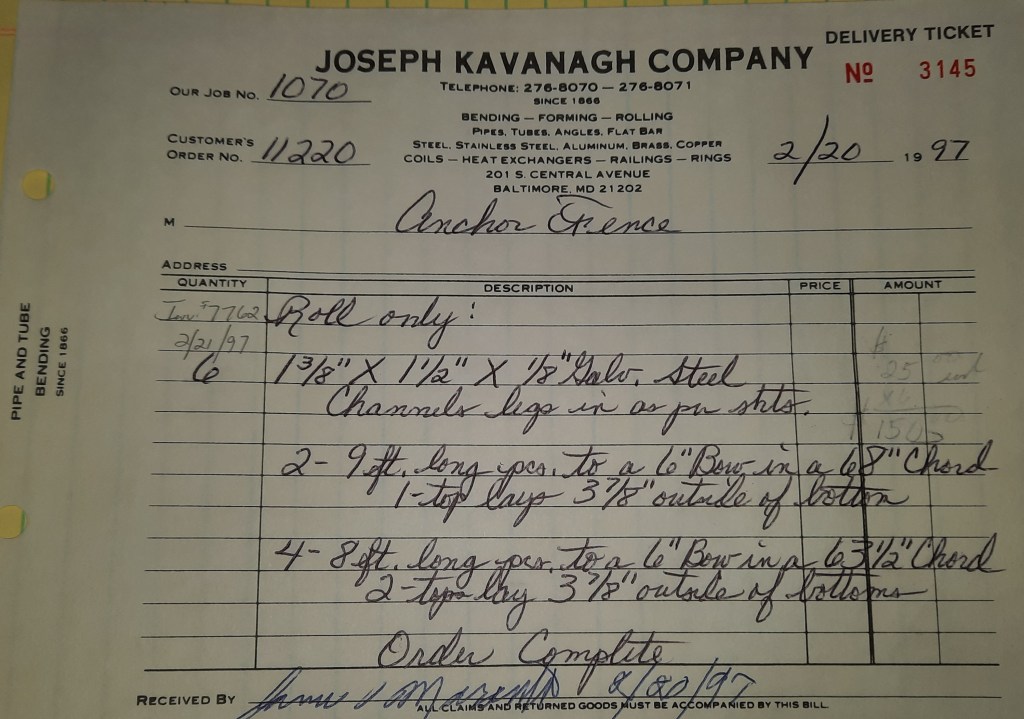 DELIVERY TICKET
JOSEPH KAVANAGH COMPANY
Nº 3145
OUR JOB NO. 1070
TELEPHONE: 276-8070 — 276-8071
SINCE 1866
BENDING — FORMING — ROLLING
PIPES, TUBES, ANGLES, FLAT BAR
CUSTOMER'S
ORDER NO. 11220
STEEL, STAINLESS STEEL, ALUMINUM, BRASS, COPPER
COILS — HEAT EXCHANGERS — RAILINGS — RINGS
2/20 19 97
201 S. CENTRAL AVENUE
BALTIMORE, MD 21202
M Anchor Fence
ADDRESS
QUANTITY DESCRIPTION PRICE AMOUNT
Inv. # 7762 Roll only:
2/21/97
6 1 3/8" X 1 1/2" X 1/8" Galv. Steel
25
Channels legs in as per shts.
X6
150
2 - 9 ft. long pcs. to a 6" Bow in a 68" Chord
1-top lays 3 7/8" outside of bottom
4 - 8 ft. long pcs. to a 6" Bow in a 63 1/2" Chord
2-tops lay 3 7/8" outside of bottoms
Order Complete
RECEIVED BY 2/20/97
ALL CLAIMS AND RETURNED GOODS MUST BE ACCOMPANIED BY THIS BILL.
PIPE AND TUBE
BENDING
SINCE 1866